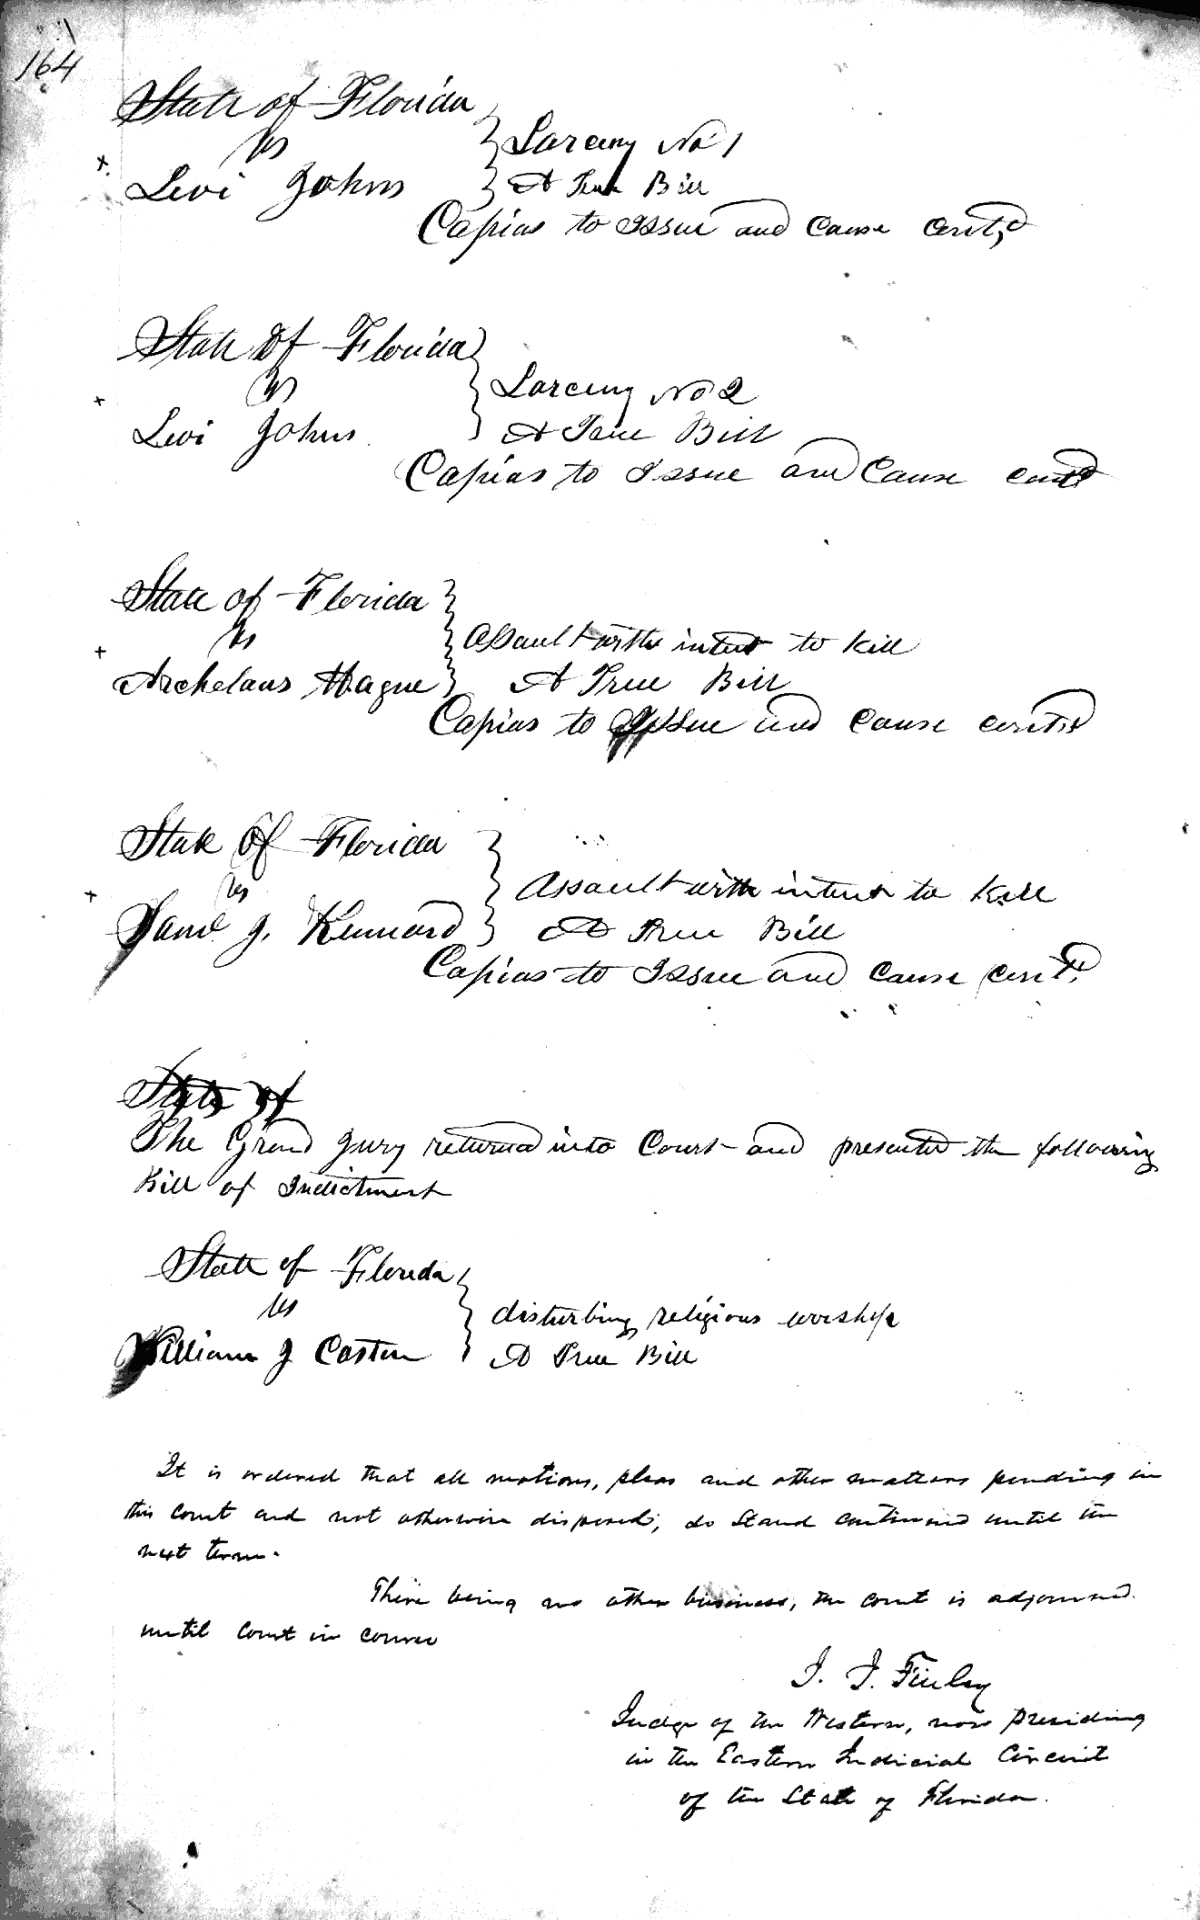 164
State of Florida
vs
Levi Johns
Larceny No 1
A True Bill
Capias to Issue and cause cont,d
State Of Florida
vs
Levi Johns
Larceny No 2
A True Bill
Capias to Issue and Cause contd
State of Florida
vs
Archelaus Hague
Assault with intent to kill
A True Bill
Capias to Issue and cause contd
State Of Florida
vs
J. Kennard
Assault with intent to Kill
A True Bill
Capias to Issue and cause contd
State of
The Grand Jury returned into Court and presented the following
Bill of Indictment
State of Florida
vs
William J Casten
disturbing religious worship
A True Bill
It is ordered that all motions, pleas and other matters pending in
this court and not otherwise disposed, do stand continued until the
next term.
There being no other business, the court is adjourned
until court in course
J. J. Finley
Judge of the Western, now presiding
in the Eastern Judicial Circuit
of the State of Florida.